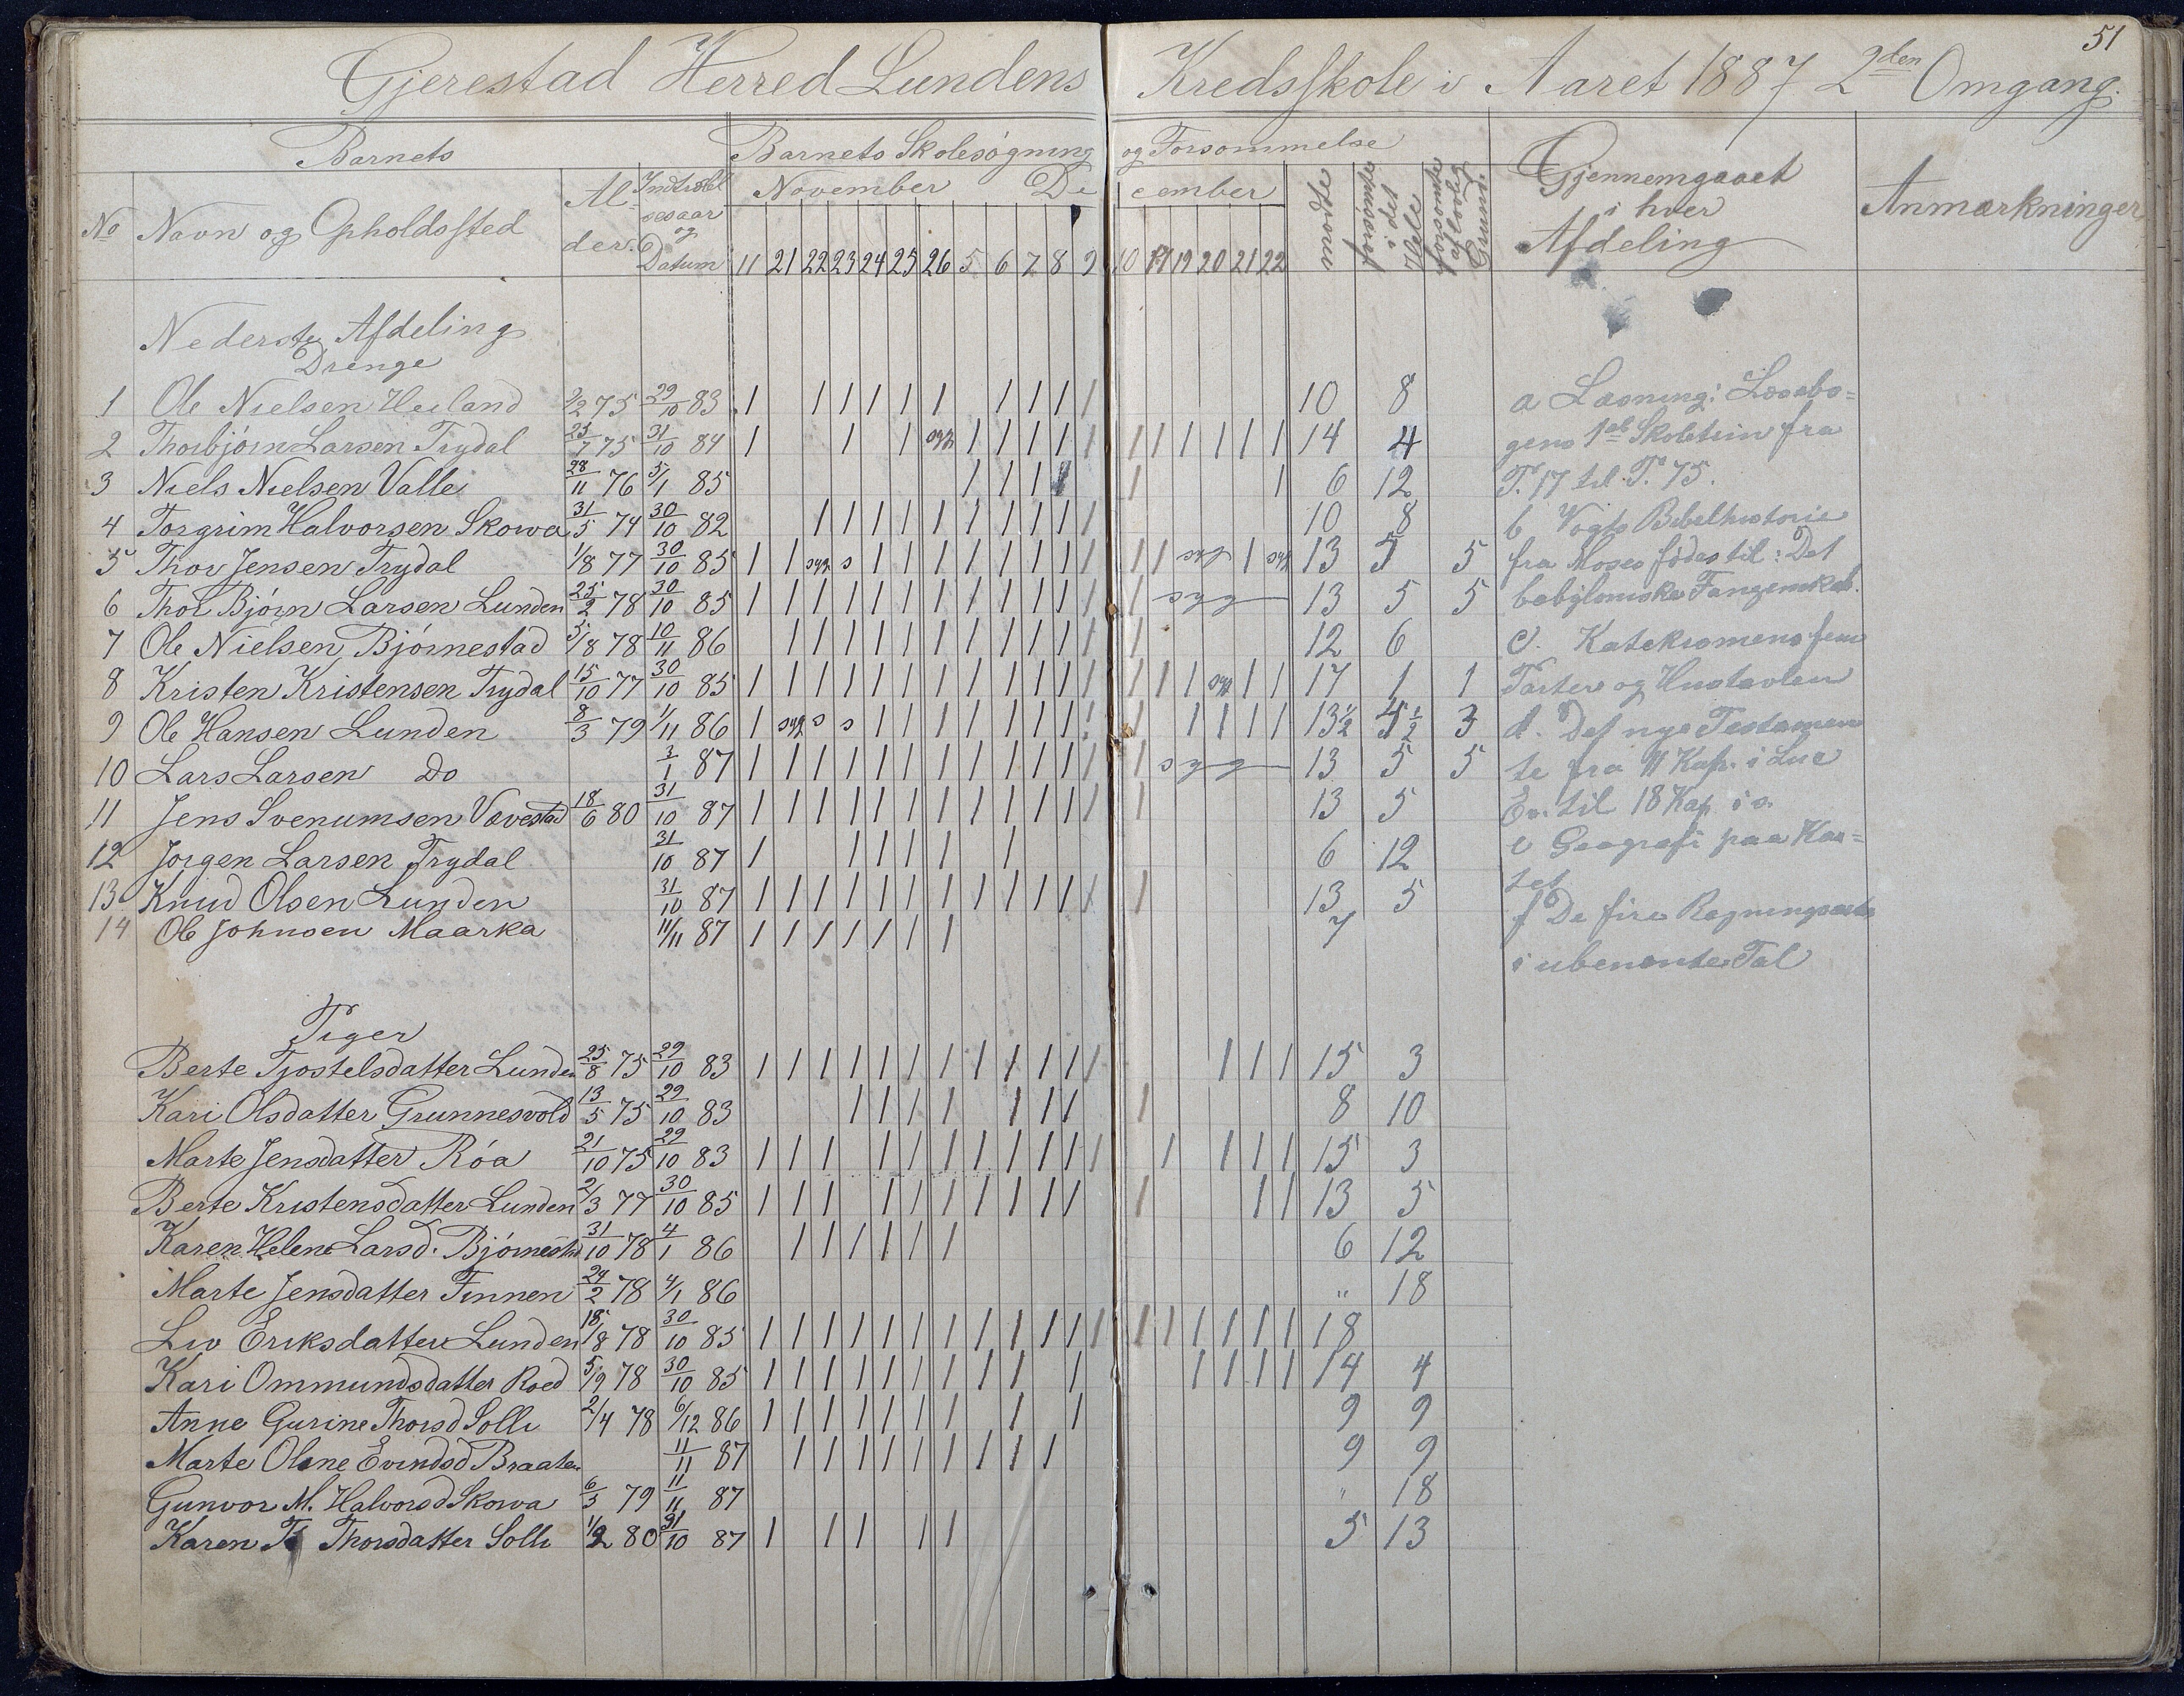 51
Gjerestad Herred Lundens Kredsskole i Aaret 1887 2den Omgang.
Barnets Barnets Skolesøgning og Forsømmelse
No Navn og Opholdssted Alder. Indtrædelsesaar og Datum November December mødte forsømte i det Hele forsømte af lovlig Grund Gjennemgaaet i hver Afdeling Anmærkninger
11 21 22 23 24 25 26 5 6 7 8 9 10 19 20 21 22
Nederste Afdeling
Drenge
1 Ole Nielsen Heiland 2/2 75 29/10 83 1 1 1 1 1 1 1 1 1 1 10 8
2 Thorbjørn Larsen Trydal 25/7 75 31/10 84 1 1 1 syg 1 1 1 1 1 1 1 1 1 1 1 14 4
3 Niels Nielsen Vallei 28/11 76 5/1 85 1 1 1 1 1 1 6 12
4 Torgrim Halvorsen Skowa 31/5 74 30/10 82 1 1 1 1 1 1 1 1 1 1 10 8
5 Thor Jensen Trydal 1/8 77 30/10 85 1 1 syg s 1 1 1 1 1 1 1 1 1 1 syg 1 syg 13 5 5
6 Thor Bjørn Larsen Lunden 25/2 78 30/10 85 1 1 1 1 1 1 1 1 1 1 1 1 1 syg 13 5 5
7 Ole Nielsen Bjørnestad 5/8 78 10/11 86 1 1 1 1 1 1 1 1 1 1 1 1 12 6
8 Kristen Kristensen Trydal 15/10 77 30/10 85 1 1 1 1 1 1 1 1 1 1 1 1 1 1 1 syg 1 1 17 1 1
9 Ole Hansen Lunden 8/3 79 1/11 86 1 syg s s 1 1 1 1 1 1 1 1 1 1 1 1 1 13½ 4½ 3
10 Lars Larsen Do 3/1 87 1 1 1 1 1 1 1 1 1 1 1 1 1 syg 13 5 5
11 Jens Svenumsen Vævestad 18/6 80 31/10 87 1 1 1 1 1 1 1 1 1 1 1 1 1 13 5
12 Jørgen Larsen Trydal 31/10 87 1 1 1 1 1 1 6 12
13 Knud Olsen Lunden 31/10 87 1 1 1 1 1 1 1 1 1 1 1 1 1 13 5
14 Ole Johnsen Maarka 11/11 87 1 1 1 1 1 1 1 7
a Læsning: Læsebo=
gens 1ste Skoletrin fra
P. 17 til P. 75.
b Vogts Bibelhistorie
fra Moses fødes til: Det
babyloniske Fangenskab.
c. Katekismens fem
Parter og Hustavlen
d. Det nye Testamen
te fra 11 Kap. i Luc
Ev. til 18 Kap i s.
e Geografi paa Kar=
tet
f De fire Regningsarter
i ubenevnte Tal
Piger
Berte Tjostelsdatter Lunden 25/8 75 29/10 83 1 1 1 1 1 1 1 1 1 1 1 1 1 1 1 15 3
Kari Olsdatter Grunnesvold 13/5 75 29/10 83 1 1 1 1 1 1 1 1 8 10
Marte Jensdatter Røa 21/10 75 29/10 83 1 1 1 1 1 1 1 1 1 1 1 1 1 1 1 15 3
Berte Kristensdatter Lunden 2/3 77 30/10 85 1 1 1 1 1 1 1 1 1 1 1 1 1 13 5
Karen Helene Larsd. Bjørnestad 31/10 78 4/1 86 1 1 1 1 1 1 6 12
Marte Jensdatter Finnen 24/2 78 4/1 86 " 18
Liv Eriksdatter Lunden 18/8 78 30/10 85 1 1 1 1 1 1 1 1 1 1 1 1 1 1 1 1 1 1 18
Kari Ommundsdatter Roed 5/9 78 30/10 85 1 1 1 1 1 1 1 1 1 1 1 1 1 1 14 4
Anne Gurine Thorsd Solli 2/4 78 6/12 86 1 1 1 1 1 1 1 1 1 9 9
Marte Oline Evindsd Braaten 11/11 87 1 1 1 1 1 1 1 1 1 9 9
Gunvor M. Halvorsd Skowa 6/3 79 11/11 87 " 18
Karen T Thorsdatter Solli 1/2 80 31/10 87 1 1 1 1 1 5 13